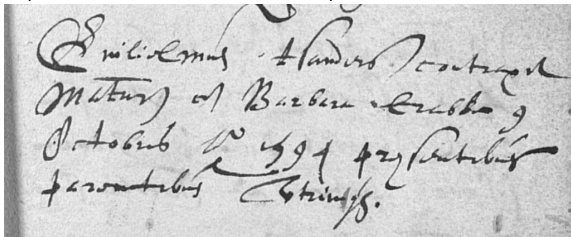 Guilielmus tsanders contraxit
Matrim cū Barbara Crabbe 9
Octobris Aº 1594 presentibus
parentibus utriusq.